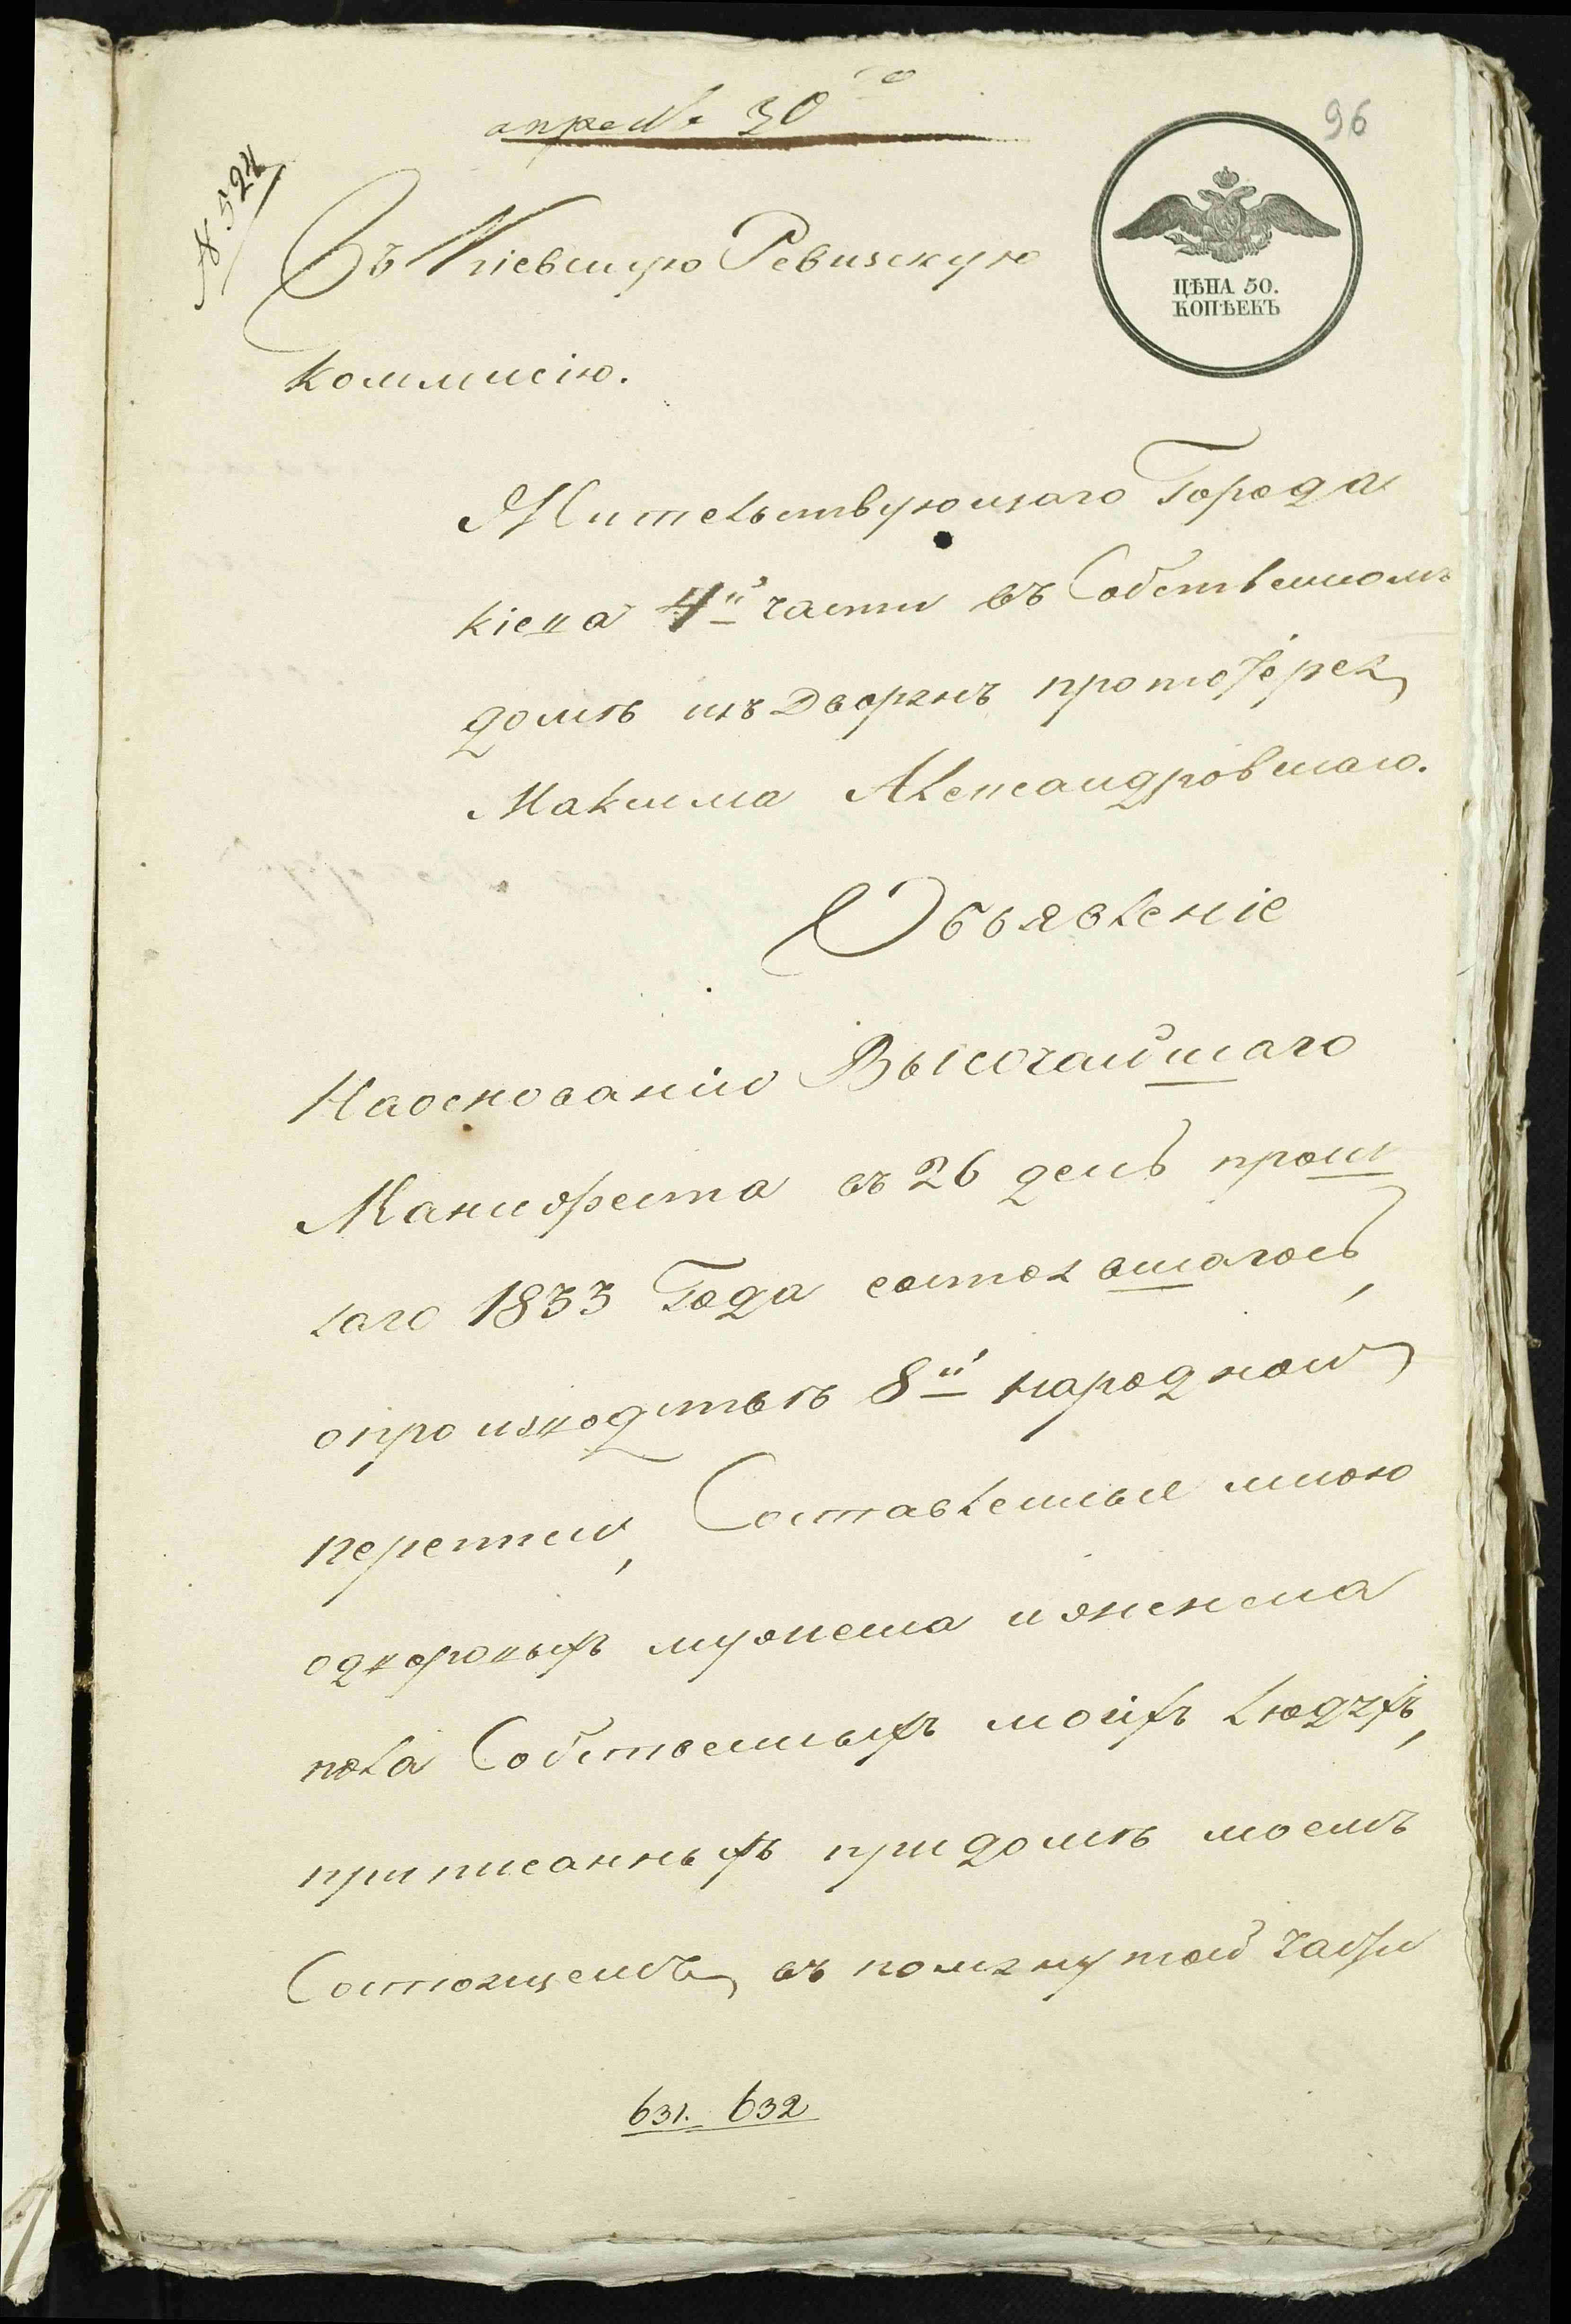 апреля 30го
96
№ 524
ЦѢНА 50.
КОПѢЕКЪ
Въ Кіевскую Ревизскую
коммисію.
Жительствующаго Города
Кіева 4й части въ Собственномъ
домѣ изъ Дворянъ протоіерея
Максима Александровскаго.
Объявленіе
Наоснованіи Высочайшаго
Манифеста въ 26 день прош
лаго 1833 Года состоявшагось,
опроизводствѣ 8й народной
переписи, Составленныя мною
одворовыхъ мужеска иженска
пола Собственныхъ моихъ людяхъ,
приписанныхъ придомѣ моемъ
Состоящемъ въ помянутой части
631. 632